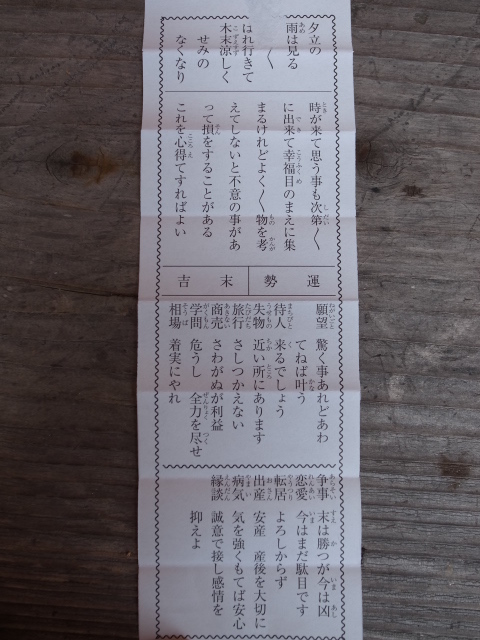 夕立の
雨は見る
〱
はれ行きて
木末涼しく
せみの
なくなり
時が来て思う事も次第〱
に出来て幸福目のまえに集
まるけれどよく〱物を考
えてしないと不意の事があ
って損をすることがある
これを心得てすればよい
運勢 末吉
願望 驚く事あれどあわ
てねば叶う
待人 来るでしょう
失物 近い所にあります
旅行 さしつかえない
商売 さわがぬが利益
学問 危うし 全力を尽せ
相場 着実にやれ
争事 末は勝つが今は凶
恋愛 今はまだ駄目です
転居 よろしからず
出産 安産 産後を大切に
病気 気を強くもてば安心
縁談 誠意で接し感情を
抑えよ